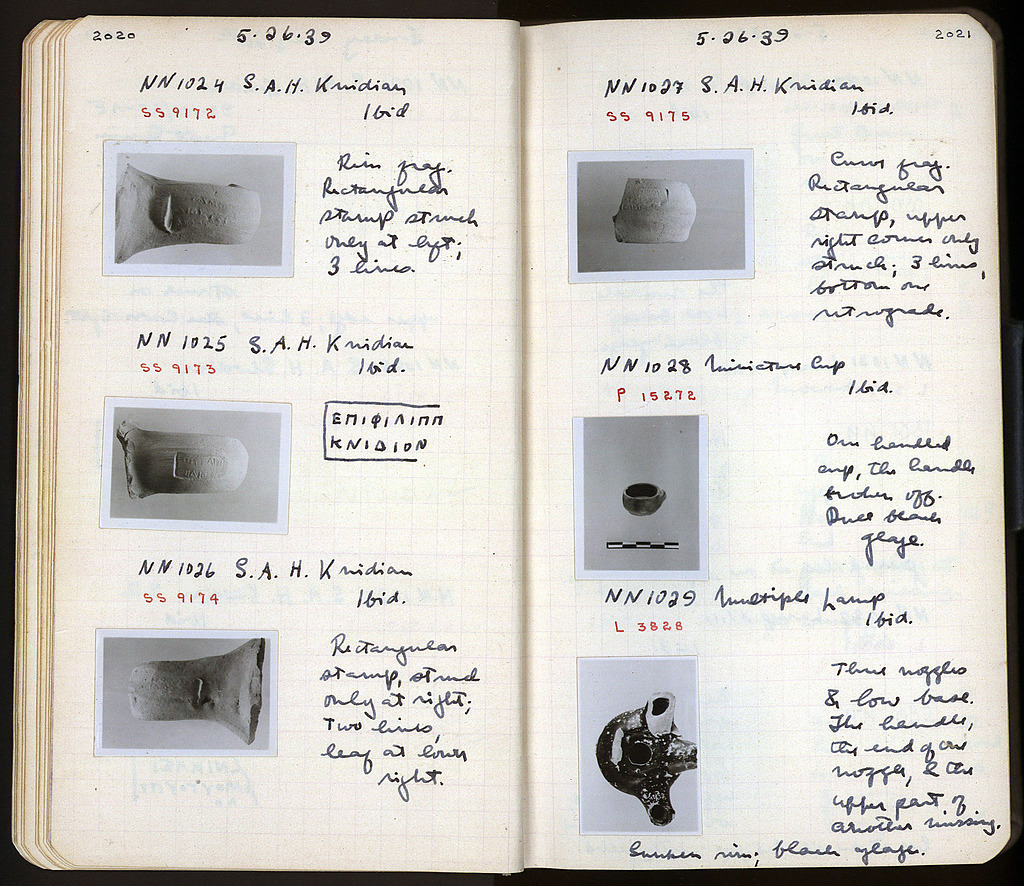 2020
5·26·39
NN1024 S.A.H. Knidian
SS 9172
Ibid
Rim frag.
Rectangular
stamp struck
only at left;
3 lines.
NN 1025 S.A.H. Knidian
SS 9173
Ibid.
ΕΠΙΦΙΛΙΠΠ
ΚΝΙΔΙΟΝ
NN1026 S.A.H. Knidian
SS 9174
Ibid.
Rectangular
stamp, struck
only at right;
Two lines,
leaf at lower
right.
5·26·39
2021
NN1027 S.A.H. Knidian
SS 9175
Ibid.
Curve frag.
Rectangular
stamp, upper
right corner only
struck; 3 lines,
bottom one
retrograde.
NN1028 Miniature Cup
P 15272
Ibid.
One handled
cup, the handle
broken off.
Dull black
glaze.
NN1029 Multiple Lamp
L 3828
Ibid.
Three nozzles
& low base.
The handle,
the end of one
nozzle, & the
upper part of
another missing.
Sunken rim; black glaze.